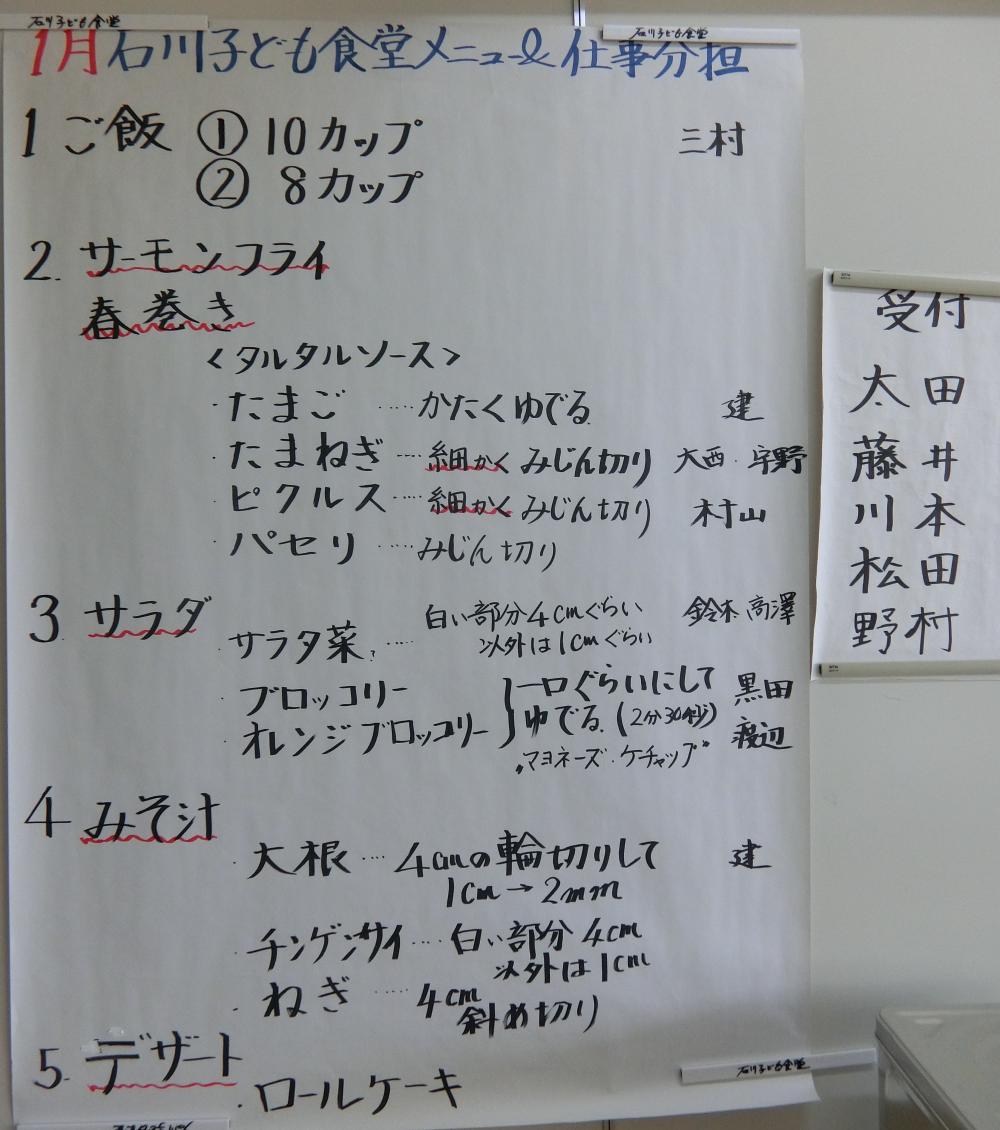 石川子ども食堂
石川子ども食堂
1月石川子ども食堂メニュー&仕事分担
1 ご飯 ① 10カップ 三村
② 8カップ
2. サーモンフライ
春巻き
<タルタルソース>
・たまご ‥‥かたくゆでる 建
・たまねぎ ‥‥細かくみじん切り 大西・宇野
・ピクルス ‥‥細かくみじん切り 村山
・パセリ ‥‥みじん切り
3. サラダ 白い部分4cmぐらい 鈴木 高澤
・サラタ菜 ‥‥ 以外は1cmぐらい
・ブロッコリー 一口ぐらいにして 黒田
・オレンジブロッコリー ゆでる (2分30秒) 渡辺
"マヨネーズ・ケチャップ"
4 みそ汁
・大根 ‥‥ 4cmの輪切りして 建
1cm→2mm
・チンゲンサイ ‥‥ 白い部分 4cm
以外は1cm
・ねぎ ‥‥ 4cm
斜め切り
5. デザート
・ロールケーキ
石川子ども食堂
受付
太田
藤井
川本
松田
野村